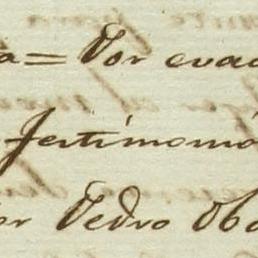 a= Por evac
Jestimonio
or Pedro Oba